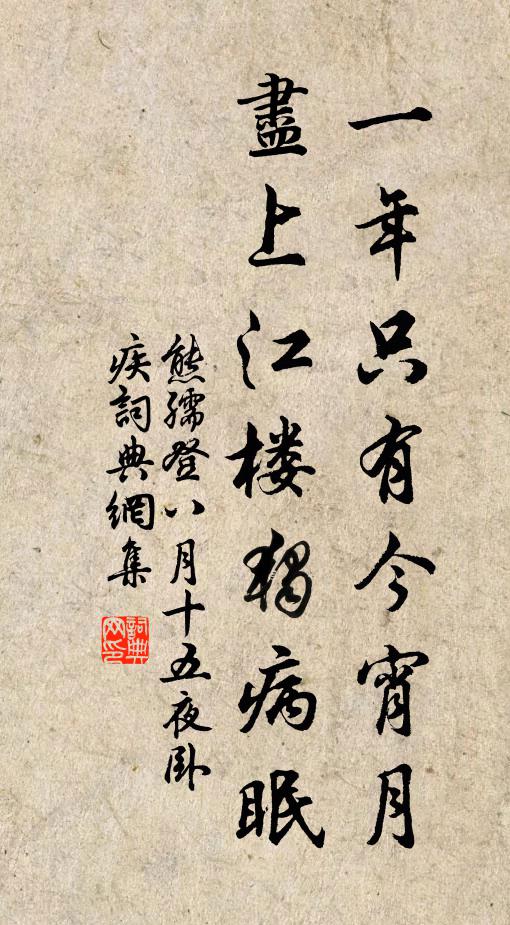 一年只有今宵月
盡上江楼獨病眠
熊孺登八月十五夜卧
疾詞典網集
詞典网印